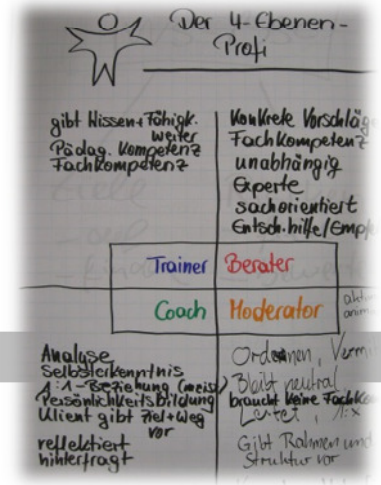 Der 4-Ebenen-
Profi
gibt Wissen+Fähigk.
weiter
Pädag. Kompetenz
Fachkompetenz
Konkrete Vorschläg
Fachkompetenz
unabhängig
Experte
sachorientiert
Entsch.hilfe/Empf
Trainer
Berater
Coach
Moderator
Analyse
Selbsterkenntnis
1:1-Beziehung (meist)
Persönlichkeitsbildung
Klient gibt Ziel+Weg
vor
reflektiert
hinterfragt
Ordnen, Vermi
Bleibt neutral
braucht keine Fachko
Leitet, 1:x
Gibt Rahmen und
Struktur vor